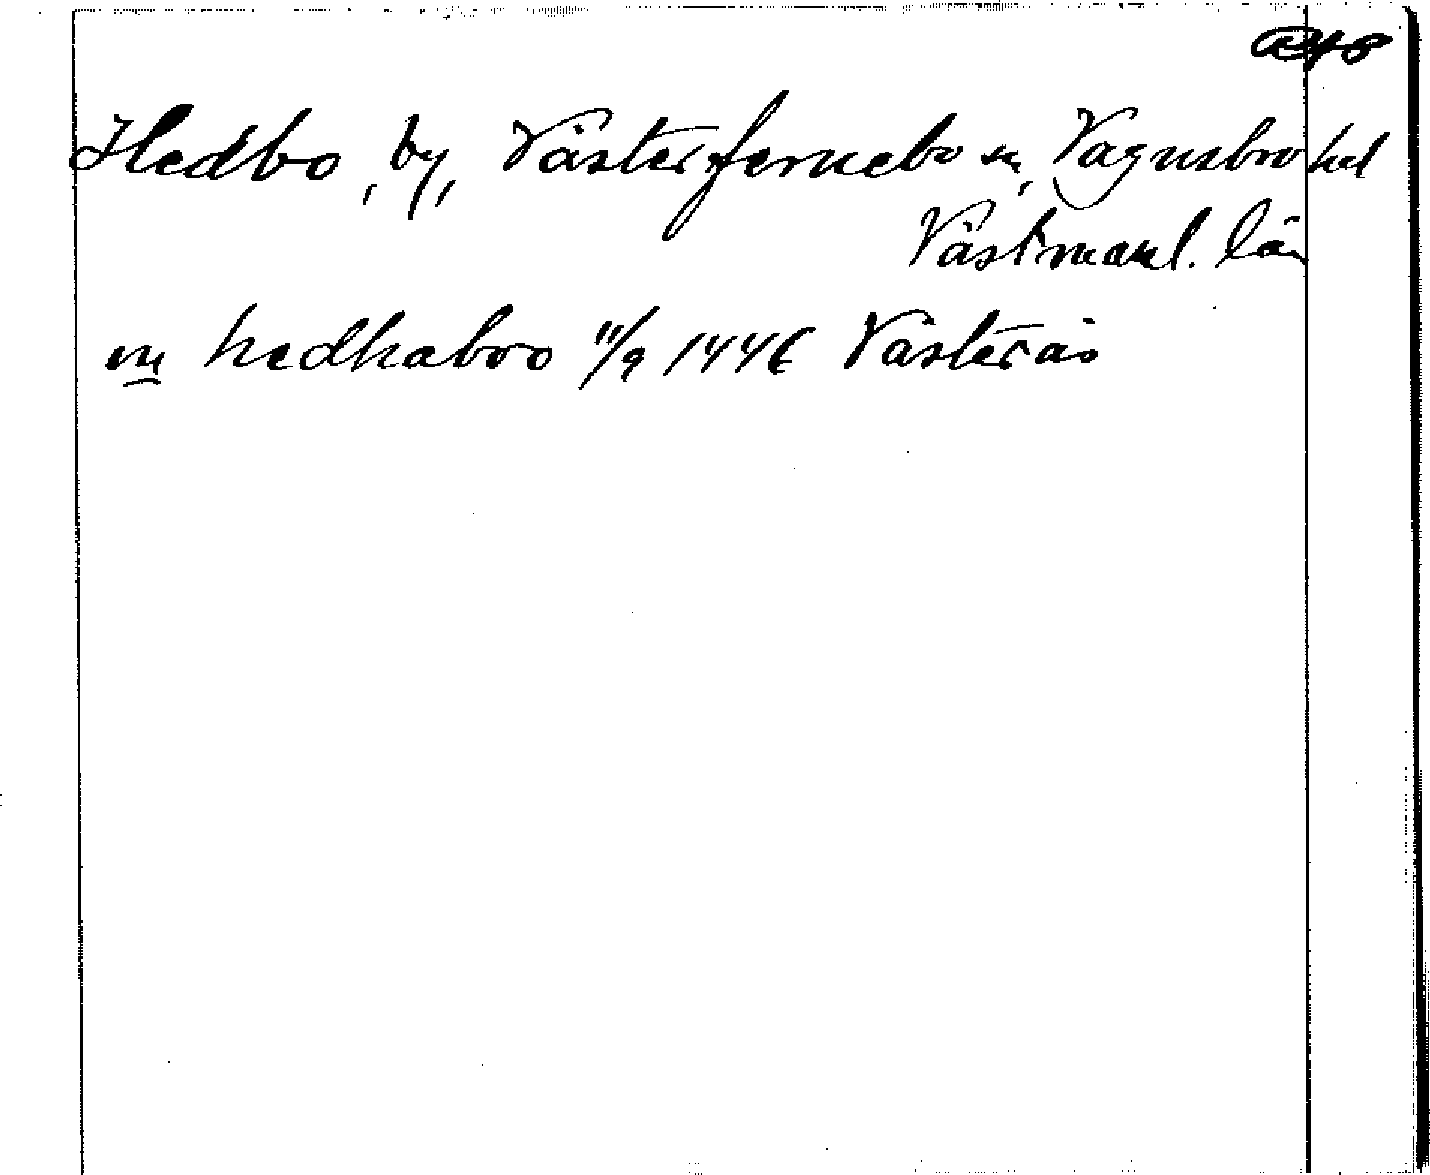 Hedbo, by, Västerfernebo sn, Vagnsbro hd
Västmanl. län
m hedhaboo 11/9 1446 Västerås